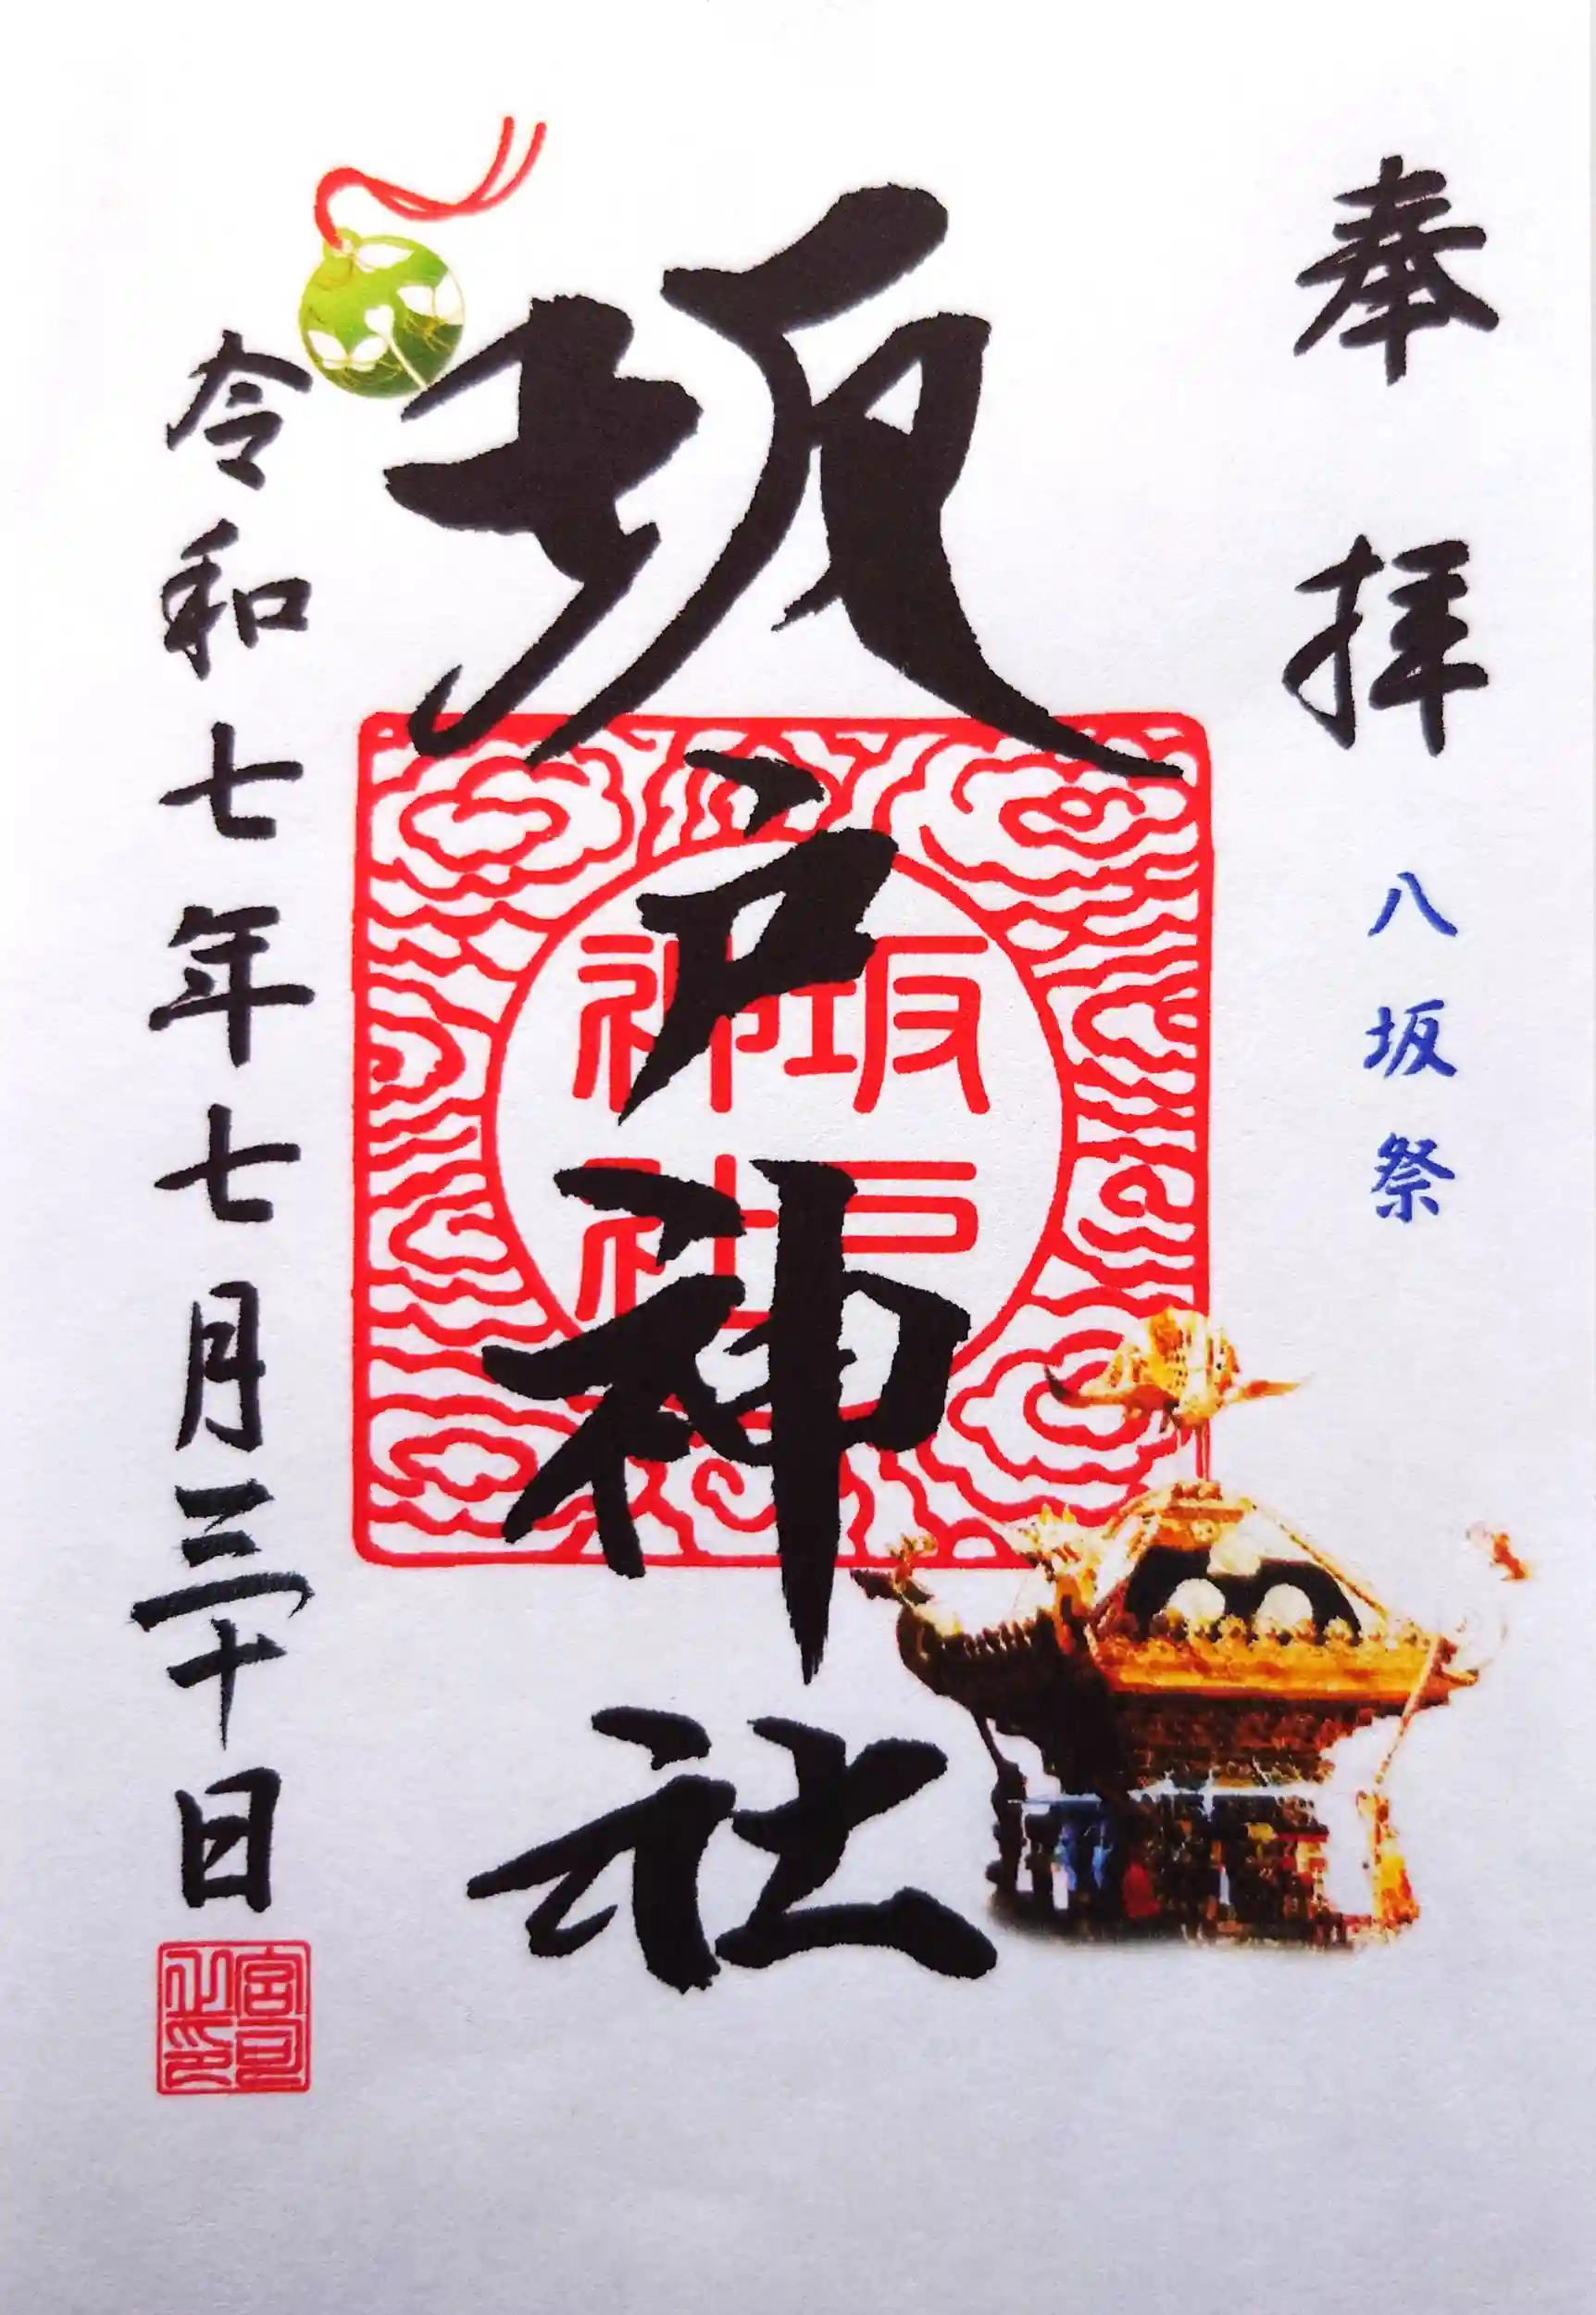 奉拝
八坂祭
坂戸神社
坂戸
神社
令和七年七月三十日
宮司
之印